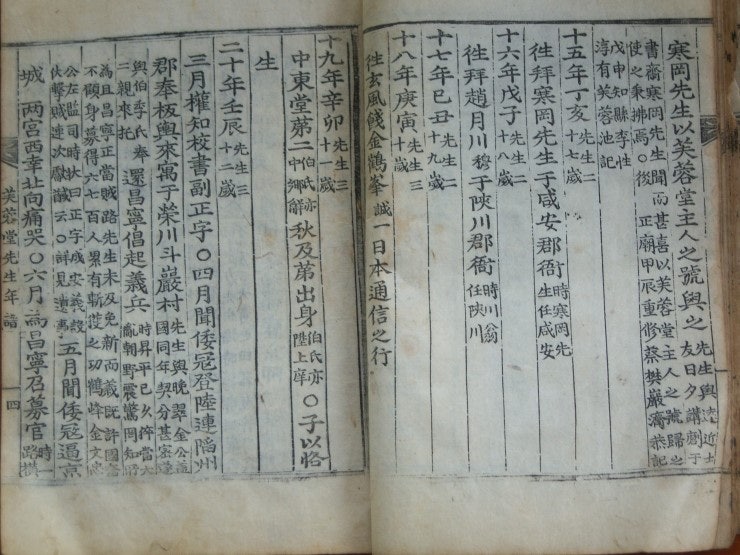 寒岡先生以芙蓉堂主人之號與之 先生與遠近士
友日夕講劘于
書齋寒岡先生聞而甚喜以芙蓉堂主人之號歸之
使之秉拂焉○後 正廟甲辰重修蔡樊巖濟恭記
戊申知縣李性
淳有芙蓉池記
十五年丁亥 先生二十七歲
徃拜寒岡先生于咸安郡衙 時寒岡先生任咸安
十六年戊子 先生二十八歲
徃拜趙月川穆于陜川郡衙 時川翁任陜川
十七年己丑 先生二十九歲
十八年庚寅 先生三十歲
徃玄風餞金鶴峯誠一日本通信之行
十九年辛卯 先生三十一歲
中東堂第二 伯氏亦中鄉解 秋及第出身 伯氏亦陞上庠 ○子以恪
生
二十年壬辰 先生三十二歲
三月權知校書副正字○四月聞倭冦登陸連陷州
郡奉板輿來寓于榮川斗巖村 先生與晚翠金公
國同年契分甚密
與伯李氏奉
二親來托 還昌寧倡起義兵 時昇平已久倅當大
亂朝野震驚罔知
為且昌寧正當賊路先生未及免新而旣許國
不顧身募得六七百人累有斬獲之功鶴峰金文忠
公左監司時狀曰正字成安義設
伏擊賊連次獻馘云○詳見遺事 五月聞倭冦逼京
城 兩宮西幸北向痛哭○六月為昌寧召募官 時一路橫
芙蓉堂先生年譜 四